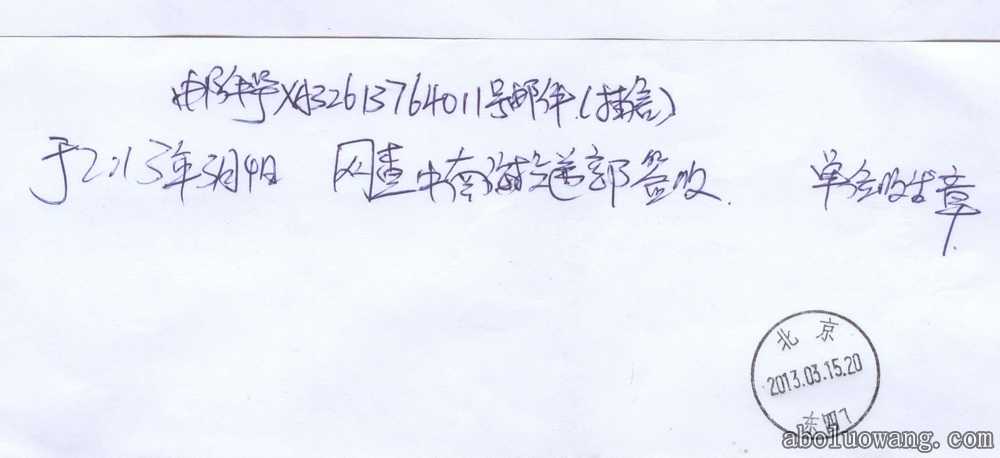 邮件号XA32613764011号邮件(挂信)
于2013年3月4日 网查中南海投递郭签收. 单位收发章.
北京
2013.03.15.20
东四7
aboluowang.com